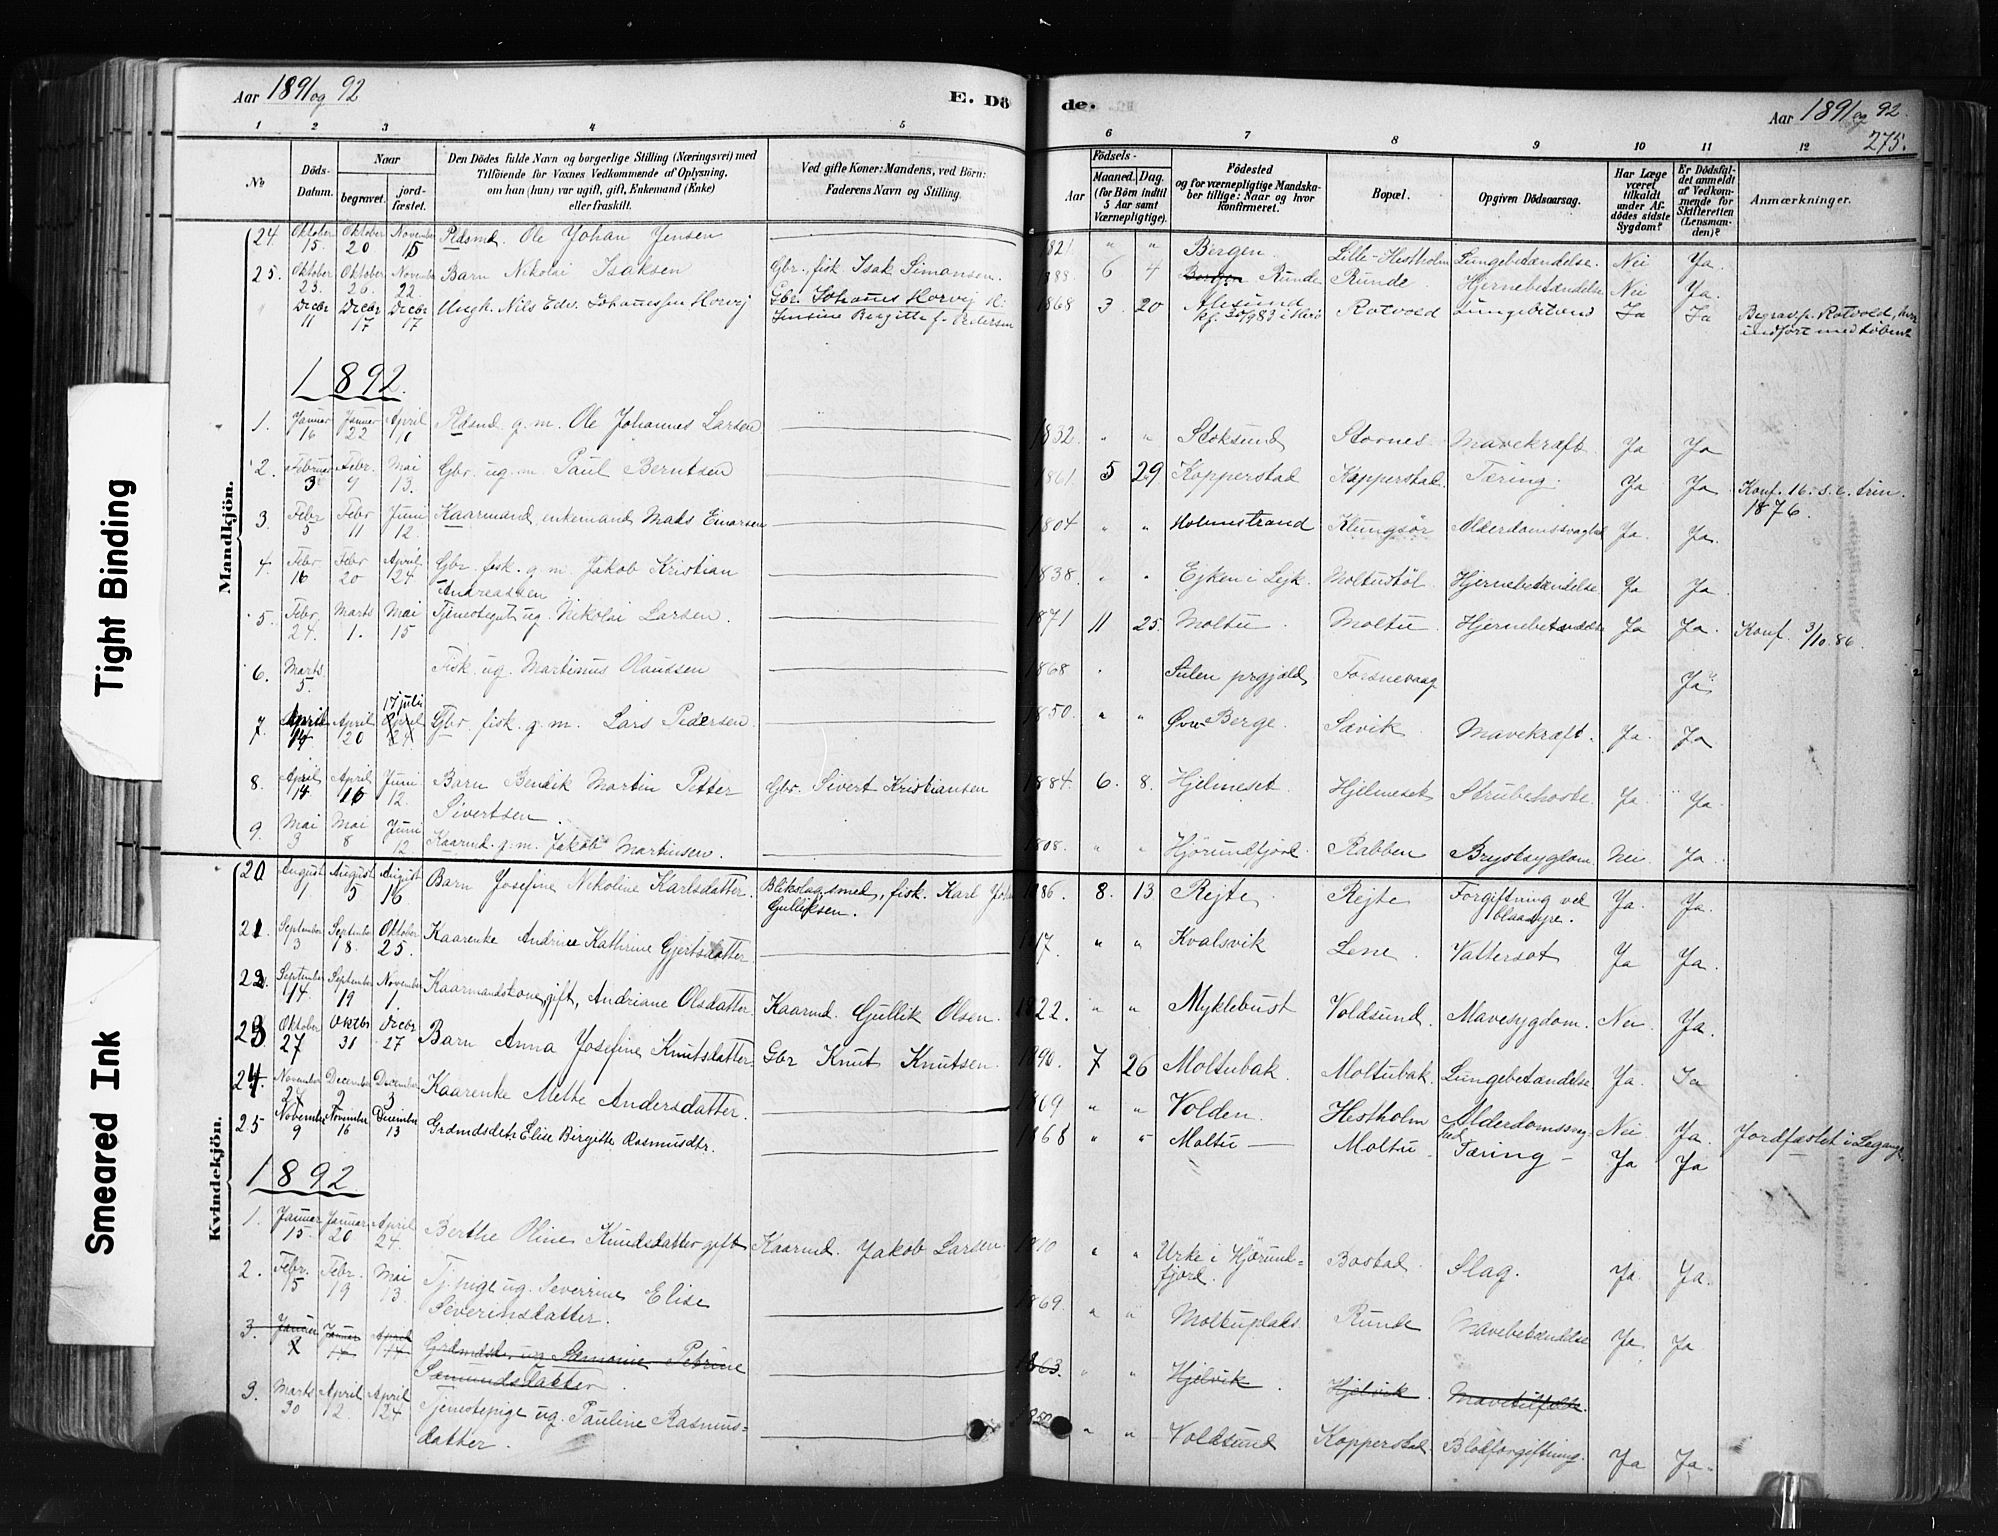 Aar 1891 og 92
E. Dö
de.
Aar 1891 og 92.
275.
1 2 3 4 5 6 7 8 9 10 11 12
No
Döds-Datum.
Naar
begravet.
jord-fæstet.
Den Dödes fulde Navn og borgerlige Stilling (Næringsvei) med
Tilföiende for Voxnes Vedkommende af Oplysning,
om han (hun) var ugift, gift, Enkemand (Enke)
eller fraskilt.
Ved gifte Koner: Mandens, ved Börn:
Faderens Navn og Stilling.
Födsels-
Aar
Maaned. Dag.
(for Börn indtil
5 Aar samt
Værnepligtige).
Födested
og for værnepligtige Mandska-
ber tillige: Naar og hvor
konfirmeret.
Bopæl.
Opgiven Dödsaarsag.
Har Læge
været
tilkaldt
under Af-
dödes sidste
Sygdom?
Er Dödsfal-
det anmeldt
af Vedkom-
mende for
Skifteretten
(Lensman-
den)?
Anmærkninger.
Mandkjön.
24 Oktober 15 Oktober 20 November 15 Pladsmd. Ole Johan Jensen 1821. " " Bergen Lille-Hestholm Lungebetændelse. Nei Ja.
25. Oktober 23. Oktober 26. November 22. Barn Nikolai Isaksen Gbr., fisk Isak Simonsen. 1888. 6 4 Runde Runde. Hjernebetændelse Nei Ja.
" Decbr 11 Decbr 17 Decbr 17 Ungk. Nils Edv. Johannessen Horvej Gbr. Johannes Horvej
Jensine Bergitte f. Pedersen 1868 3 20 Alesund Rotvold Lungebetænd Ja Ja Begrav. p. Rotvold,
indført med løbenr
1892.
1. Januar 16 Januar 22 April 10 Pladsmd. g. m. Ole Johannes Larsen 1832. " " Stoksund Stornes Mavekræft. Ja Ja
2. Februar 3 Febr. 9 Mai 13. Gbr. ug. m. Paul Berntsen 1861 5 29 Kopperstad Kopperstad. Tæring. Ja Ja Konf. 16. s. e. trin.
1876.
3. Febr 5 Febr 11 Juni 12. Kaarmand, enkemand Mads Einarsen 1804 " " Holmestrand Klungsør Alderdomssvaghed Ja. Ja.
4. Febr 16 Febr 20 April 24 Gbr. fisk. g. m. Jakob Kristian
Andreassen 1838. " " Ejken i Lejk. Moltustøl. Hjernebetændelse Ja Ja.
5. Febr 24. Marts 1. Mai 15 Tjenestegut ug. Nikolai Larsen. 1871 11 25. Moltu Moltu Hjernebetændelse Ja Ja. Konf. 3/10.86.
6. Marts 5. Fisk. ug. Martinus Olaussen 1868 Sulen prgjæld Forsnevaag Ja
17 juli
7 April 14 April 20 April 24 Gbr. fisk. g. m. Lars Pedersen 1850. " " Øvre Berge. Sævik Mavekræft. Ja. Ja
8. April 14 April 16 Juni 12. Barn Bendik Martin Petter
Sivertsen. Gbr. Sivert Kristiansen 1884 6. 8. Hjelmeset Hjelmeset Strubehoste. Ja. Ja.
9. Mai 3 Mai 8 Juni 12 Kaarmd. g. m. Jakob Martinsen. 1808. " " Hjørundfjord. Rabben Brystsygdom Nei Ja
Kvindekjön.
20 August 1 August 5 August 16 Barn Josefine Nikoline Karlsdatter. Blikslagsmed, fisk. Karl
Gulliksen. 1886. 8. 13. Rejte Rejte Forgiftning ved
blaasyre. Ja. Ja.
21. September 3 September 8. Oktober 25. Kaarenke Andrine Kathrine Gjertsdatter " " Kvalsvik Lene Vattersot Ja Ja.
22. September 14. September 19 November 1. Kaarmandskone, gift, Andriane Olsdatter Kaarmd. Gullik Olsen. 1822. " " Myklebust Voldsund. Mavesygdom. Nei Ja.
23 Oktober 27 Oktbr 31 Decbr 27 Barn Anna Josefine Knutsdatter Gbr Knut Knutsen 1890. 7 26 Moltubak. Moltubak. Lungebetændelse Ja. Ja
24. November 24 December 2 December 3 Kaarenke Mette Andersdatter. " " Volden. Hestholm Alderdomssvag-
hed Nei Ja. Jordfæstet i Leganger
25 November 9 November 16 December 13 Grdmdsdtr Elise Birgitte Rasmusdtr. 1868 " " Moltu Moltu Tæring Ja Ja
1892.
1. Januar 15. Januar 20 April 24. Berthe Oline Knudsdatter gift Kaarmd. Jakob Larsen 1810 " " Urke i Hjørund-
fjord. Bostad. Slag. Ja Ja.
2. Febr. 15 Febr. 19 Mai 13. Tj. pige ug. Severine Elise
Severinsdatter. 1869. " " Moltuplads. Runde Mavebetændelse Ja. Ja
3. Januar Januar 14 April 14 Grdmdsd. ug Petrine
Samundsdatter. 1863. " " Hjelvik. Hjelvik.
3. Marts 30 April 12. April 24 Tjenestepige ug. Pauline Rasmus-
datter. " " Voldsund Kopperstad Blodforgiftning. Ja Ja.
Tight Binding
Smeared Ink